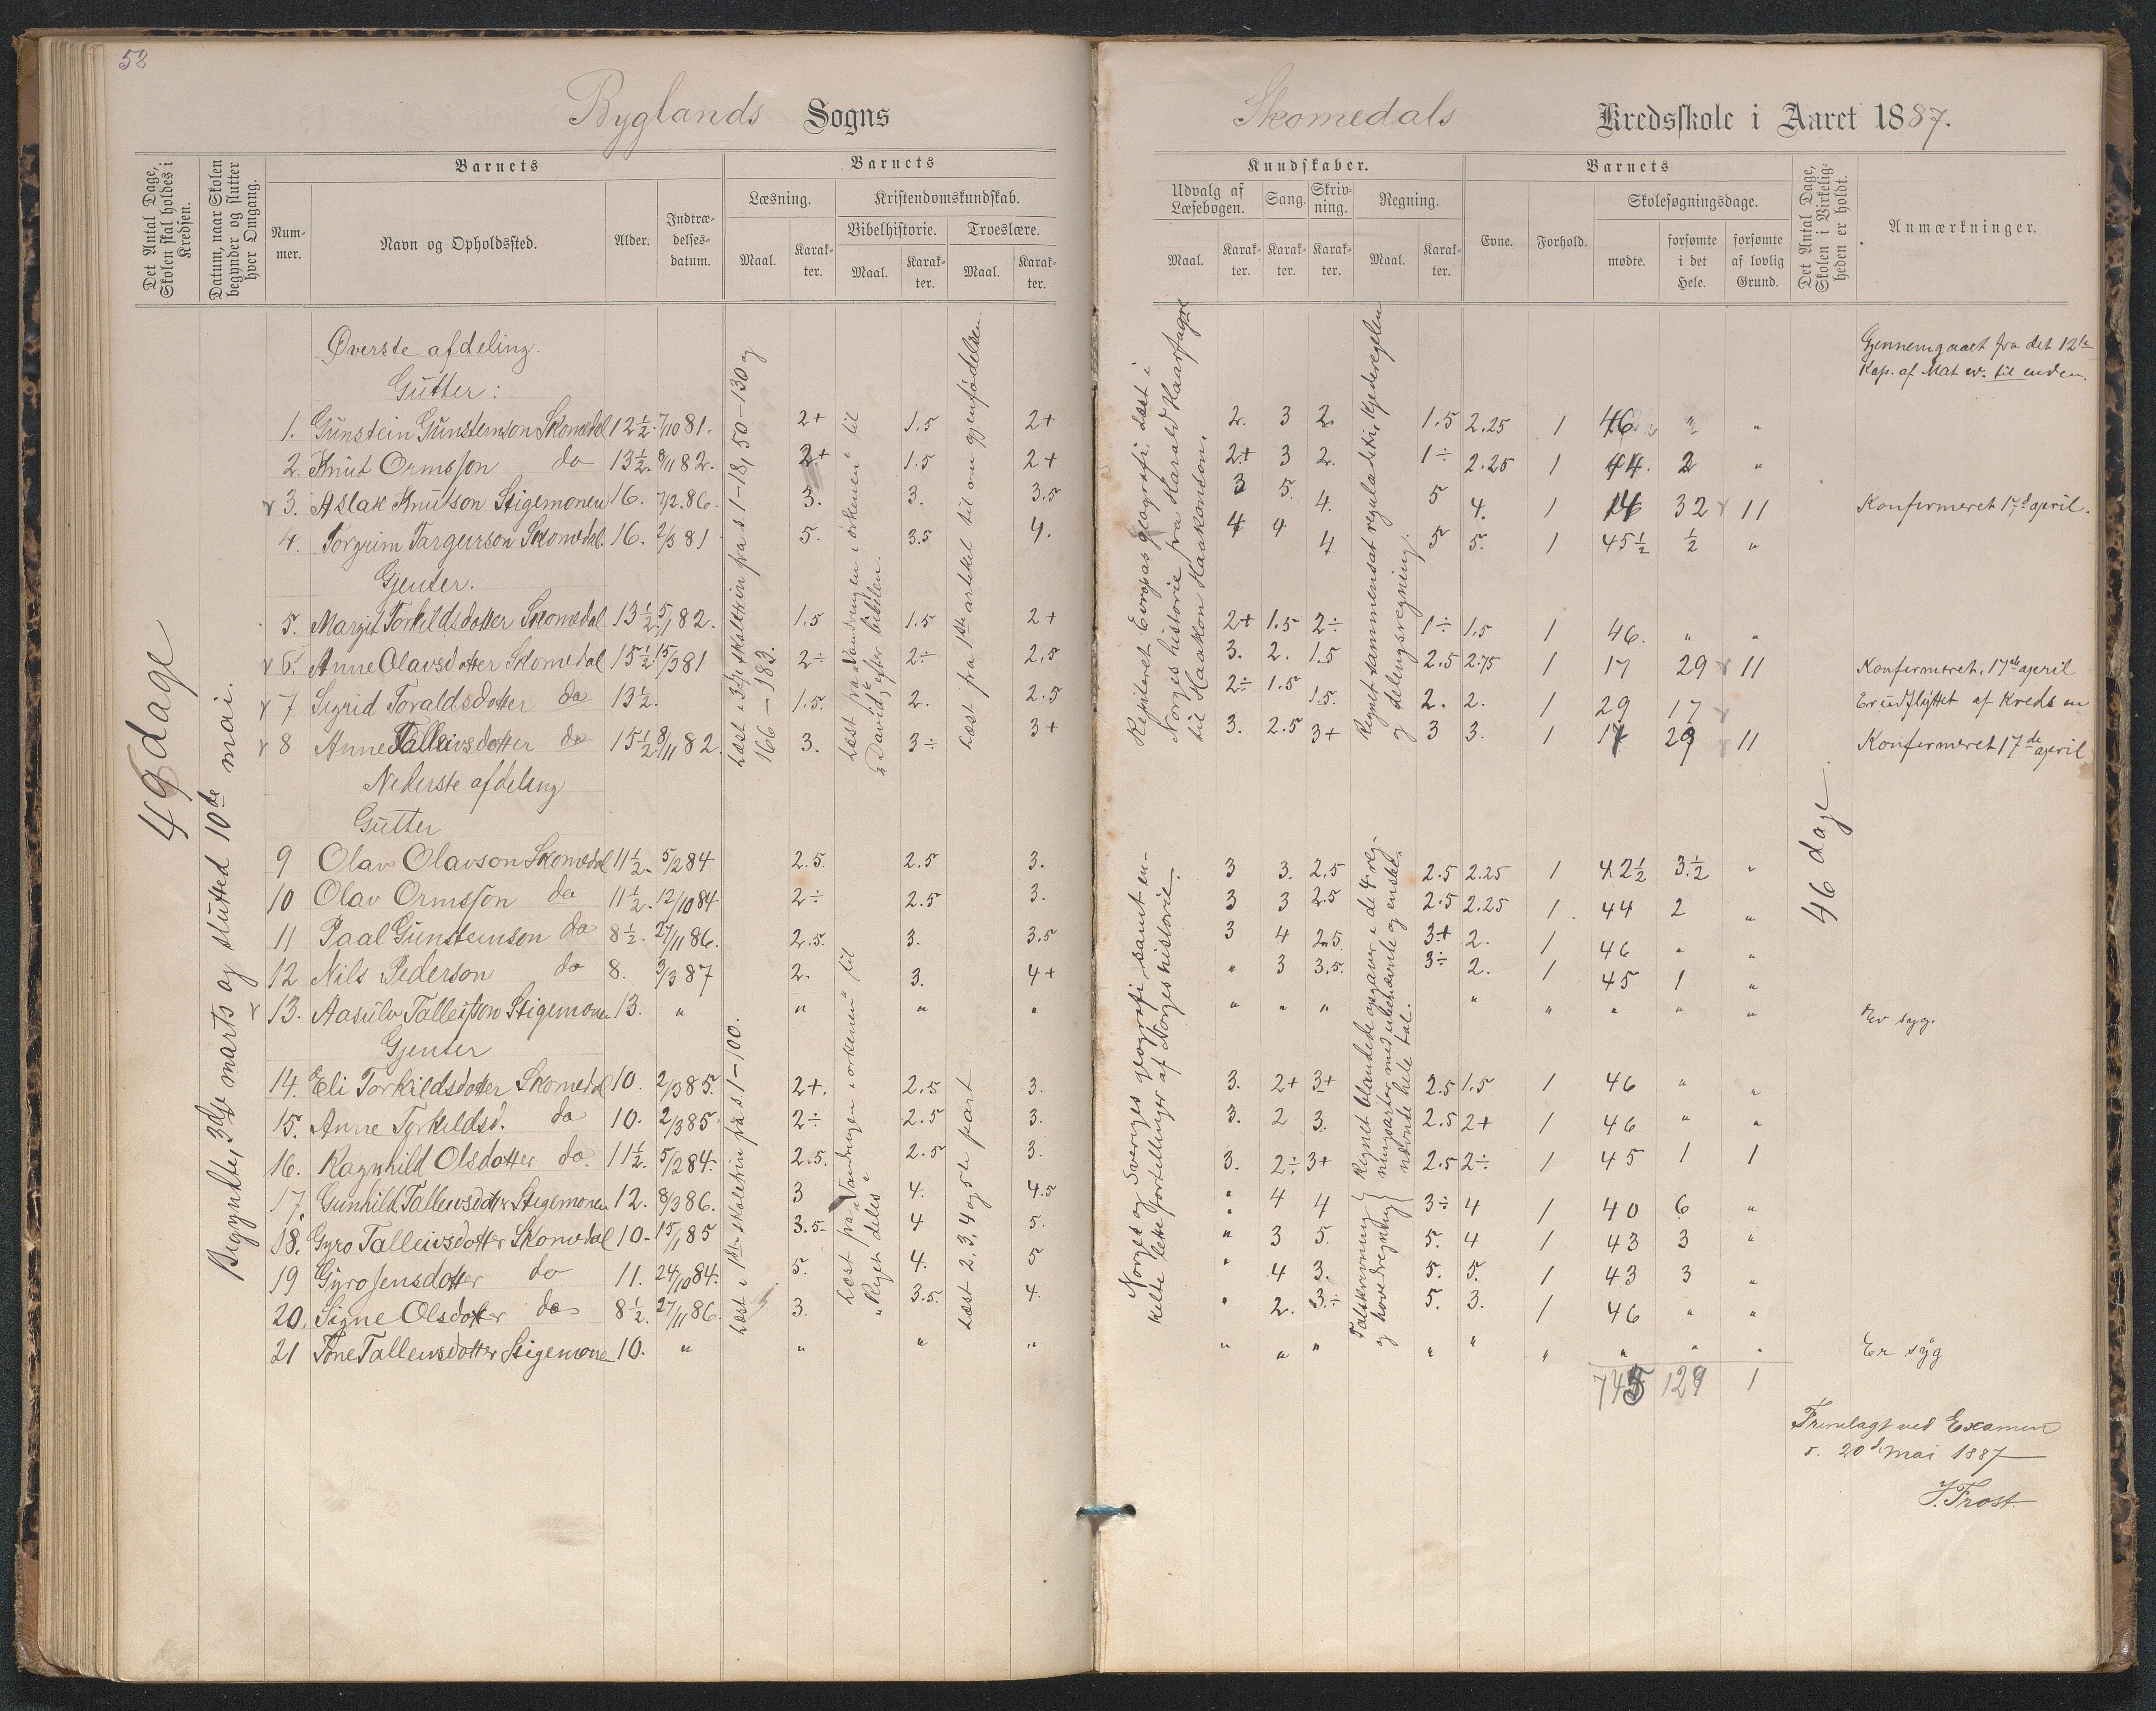 58
Byglands Sogns
Det Antal Dage, Skolen skal holdes i Kredsen.
Datum, naar Skolen begynder og slutter hver Omgang.
Barnets
Num-mer.
Navn og Opholdssted.
Alder.
Indtræ-delses-datum.
Barnets
Læsning.
Kristendomskundskab.
Bibelhistorie.
Troeslære.
Maal.
Karak-ter.
Maal.
Karak-ter.
Maal.
Karak-ter.
49 dage
Begyndte 3die marts og slutted 10de mai.
Øverste afdeling.
Gutter:
1. Gunstein Gunsteinson Skomedal 12½. 7/10 81. 2+ 1.5 2+
2. Knut Ormsson do 13½. 8/11 82. 2+ 1.5 2+
3. Aslak Knutson Stigemonen 16. 7/12.86. 3. 3. 3.5
4. Torgrim Targerson Skomedal. 16. 2/3 81 5. 3.5 4.
Gjenter.
5. Margit Torkildsdotter Skomedal 13½ 5/1 82. 1.5 1.5 2+
6. Anne Olavsdotter Skomedal 15½. 15/3 81 2÷ 2÷ 2.5
7 Sigrid Toraldsdotter do 13½. 1.5. 2. 2.5
8 Anne Talleivsdotter do 15½. 8/11 82. 3. 3÷ 3+
Nederste afdeling
Gutter
9 Olav Olavson Skomedal 11½. 5/2 84 2.5. 2.5 3.
10 Olav Ormsson do 11½. 12/10 84 2÷ 2.5 3.
11 Paal Gunsteinson do 8½. 27/11 86. 2.5. 3. 3.5
12 Nils Pederson do 8. 3/3 87 2. 3. 4+
13. Aasulv Talleifson Stigemonen 13. " " " "
Gjenter
14. Eli Torkildsdotter Skomedal 10. 2/3 85. 2+. 2.5 3.
15. Anne Torkildsd. do 10. 2/3 85. 2÷ 2.5 3.
16. Ragnhild Olsdotter do. 11½. 5/2 84. 2.5. 2.5 3.
17. Gunhild Talleivsdotter Stigemonen 12. 8/3 86. 3 4. 4.5
18. Gyro Talleivsdotter Skomedal 10. 15/1 85 3.5 4 5.
19 Gyro Jensdotter do 11. 24/10 84. 5. 4. 5
20. Signe Olsdotter do 8½. 27/11 86. 3. 3.5. 4.
21 Tone Talleivsdotter Stigemonen 10. " " " "
Læst i 3die skoletrin fra s. 1–18, 50–130 og
166–183.
Læst fra „Vandringen i ørkenen" til
„David" efter bibelen.
Læst fra 1ste artikel til om gjenfødelsen.
Læst i 1ste skoletrin fra s. 1–100.
Læst fra „Vandringen i ørkenen" til
„Riget deles"
Læst 2. 3. 4 og 5te part
Skomedals Kredsskole i Aaret 1887.
Kundskaber.
Udvalg af Læsebogen.
Sang.
Skriv-ning.
Regning.
Maal.
Karak-ter.
Karak-ter.
Karak-ter.
Maal.
Karak-ter.
Barnets
Evne.
Forhold.
Skolesøgningsdage.
mødte.
forsømte i det Hele.
forsømte af lovlig Grund.
Det Antal Dage, Skolen i Virkelig-heden er holdt.
Anmærkninger.
Repeteret Evropas geografi. Læst i
Norges historie fra Harald Haarfagre
til Haakon Haakonson.
Regnet sammensat reguladetri, kjederegelen
og delingsregning.
Gjennemgaaet fra det 12te
Kap. af Mat ev. til enden.
2. 3 2. 1.5 2.25 1 46 " "
2+ 3 2. 1÷ 2.25 1 44. 2 "
3 5. 4. 5 4. 1 14 32 11 Konfirmeret 17d april.
4 4 4 5 5. 1 45½ ½ "
2+ 1.5 2÷ 1÷ 1.5 1 46. " "
3. 2. 1.5 2.5 2.75 1 17 29 11 Konfirmeret. 17de april
2÷ 1.5 1.5. 2. 2. 1 29 17 Er udflyttet af kredsen
3. 2.5 3+ 3 3. 1 17 29 11 Konfirmeret 17de april
46 dage.
Norges og Sveriges geografi samt en-
kelte lette fortellinger af Norges historie.
Regnet blandede opgaver i de 4 reg-
ningsarter med ubenævnte og enkelte
nævnte hele tal.
Talskrivning
og hovedregning
3 3. 2.5 2.5 2.25 1 42½ 3.½ "
3 3 2.5 2.5 2.25 1. 44 2 "
3 4 2.5. 3+ 2. 1 46 " "
" 3 3.5. 3÷ 2. 1 45 1 "
" " " " " " " " Er syg.
3. 2+ 3+ 2.5 1.5 1 46 " "
3. 2 3. 2.5 2+ 1 46 " "
3. 2÷ 3+ 2.5 2÷ 1 45 1 1
" 4 4 3÷ 4 1 40 6 "
" 3 5. 5. 4 1 43 3 "
" 4 3. 5. 5. 1 43 3 "
" 2. 3.÷ 5. 3. 1 46 " "
" " " " " " " " " Er syg
745 129 1
Fremlagt ved Examen
d. 20de mai 1887
J. Frost.